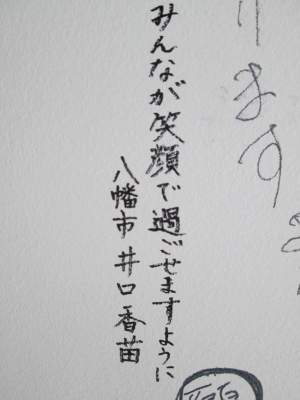 ります
みんなが笑顔で過ごせますように
八幡市 井口香苗